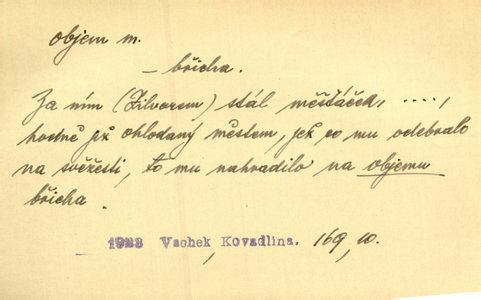 objem m.
– břicha.
Za ním (Zilvarem) stál měšťáček, ....,
hodně již ohlodaný městem, jež co mu odebralo
na svěžesti, to mu nahradilo na objemu
břicha.
1923 Vachek Kovadlina. 169, 10.